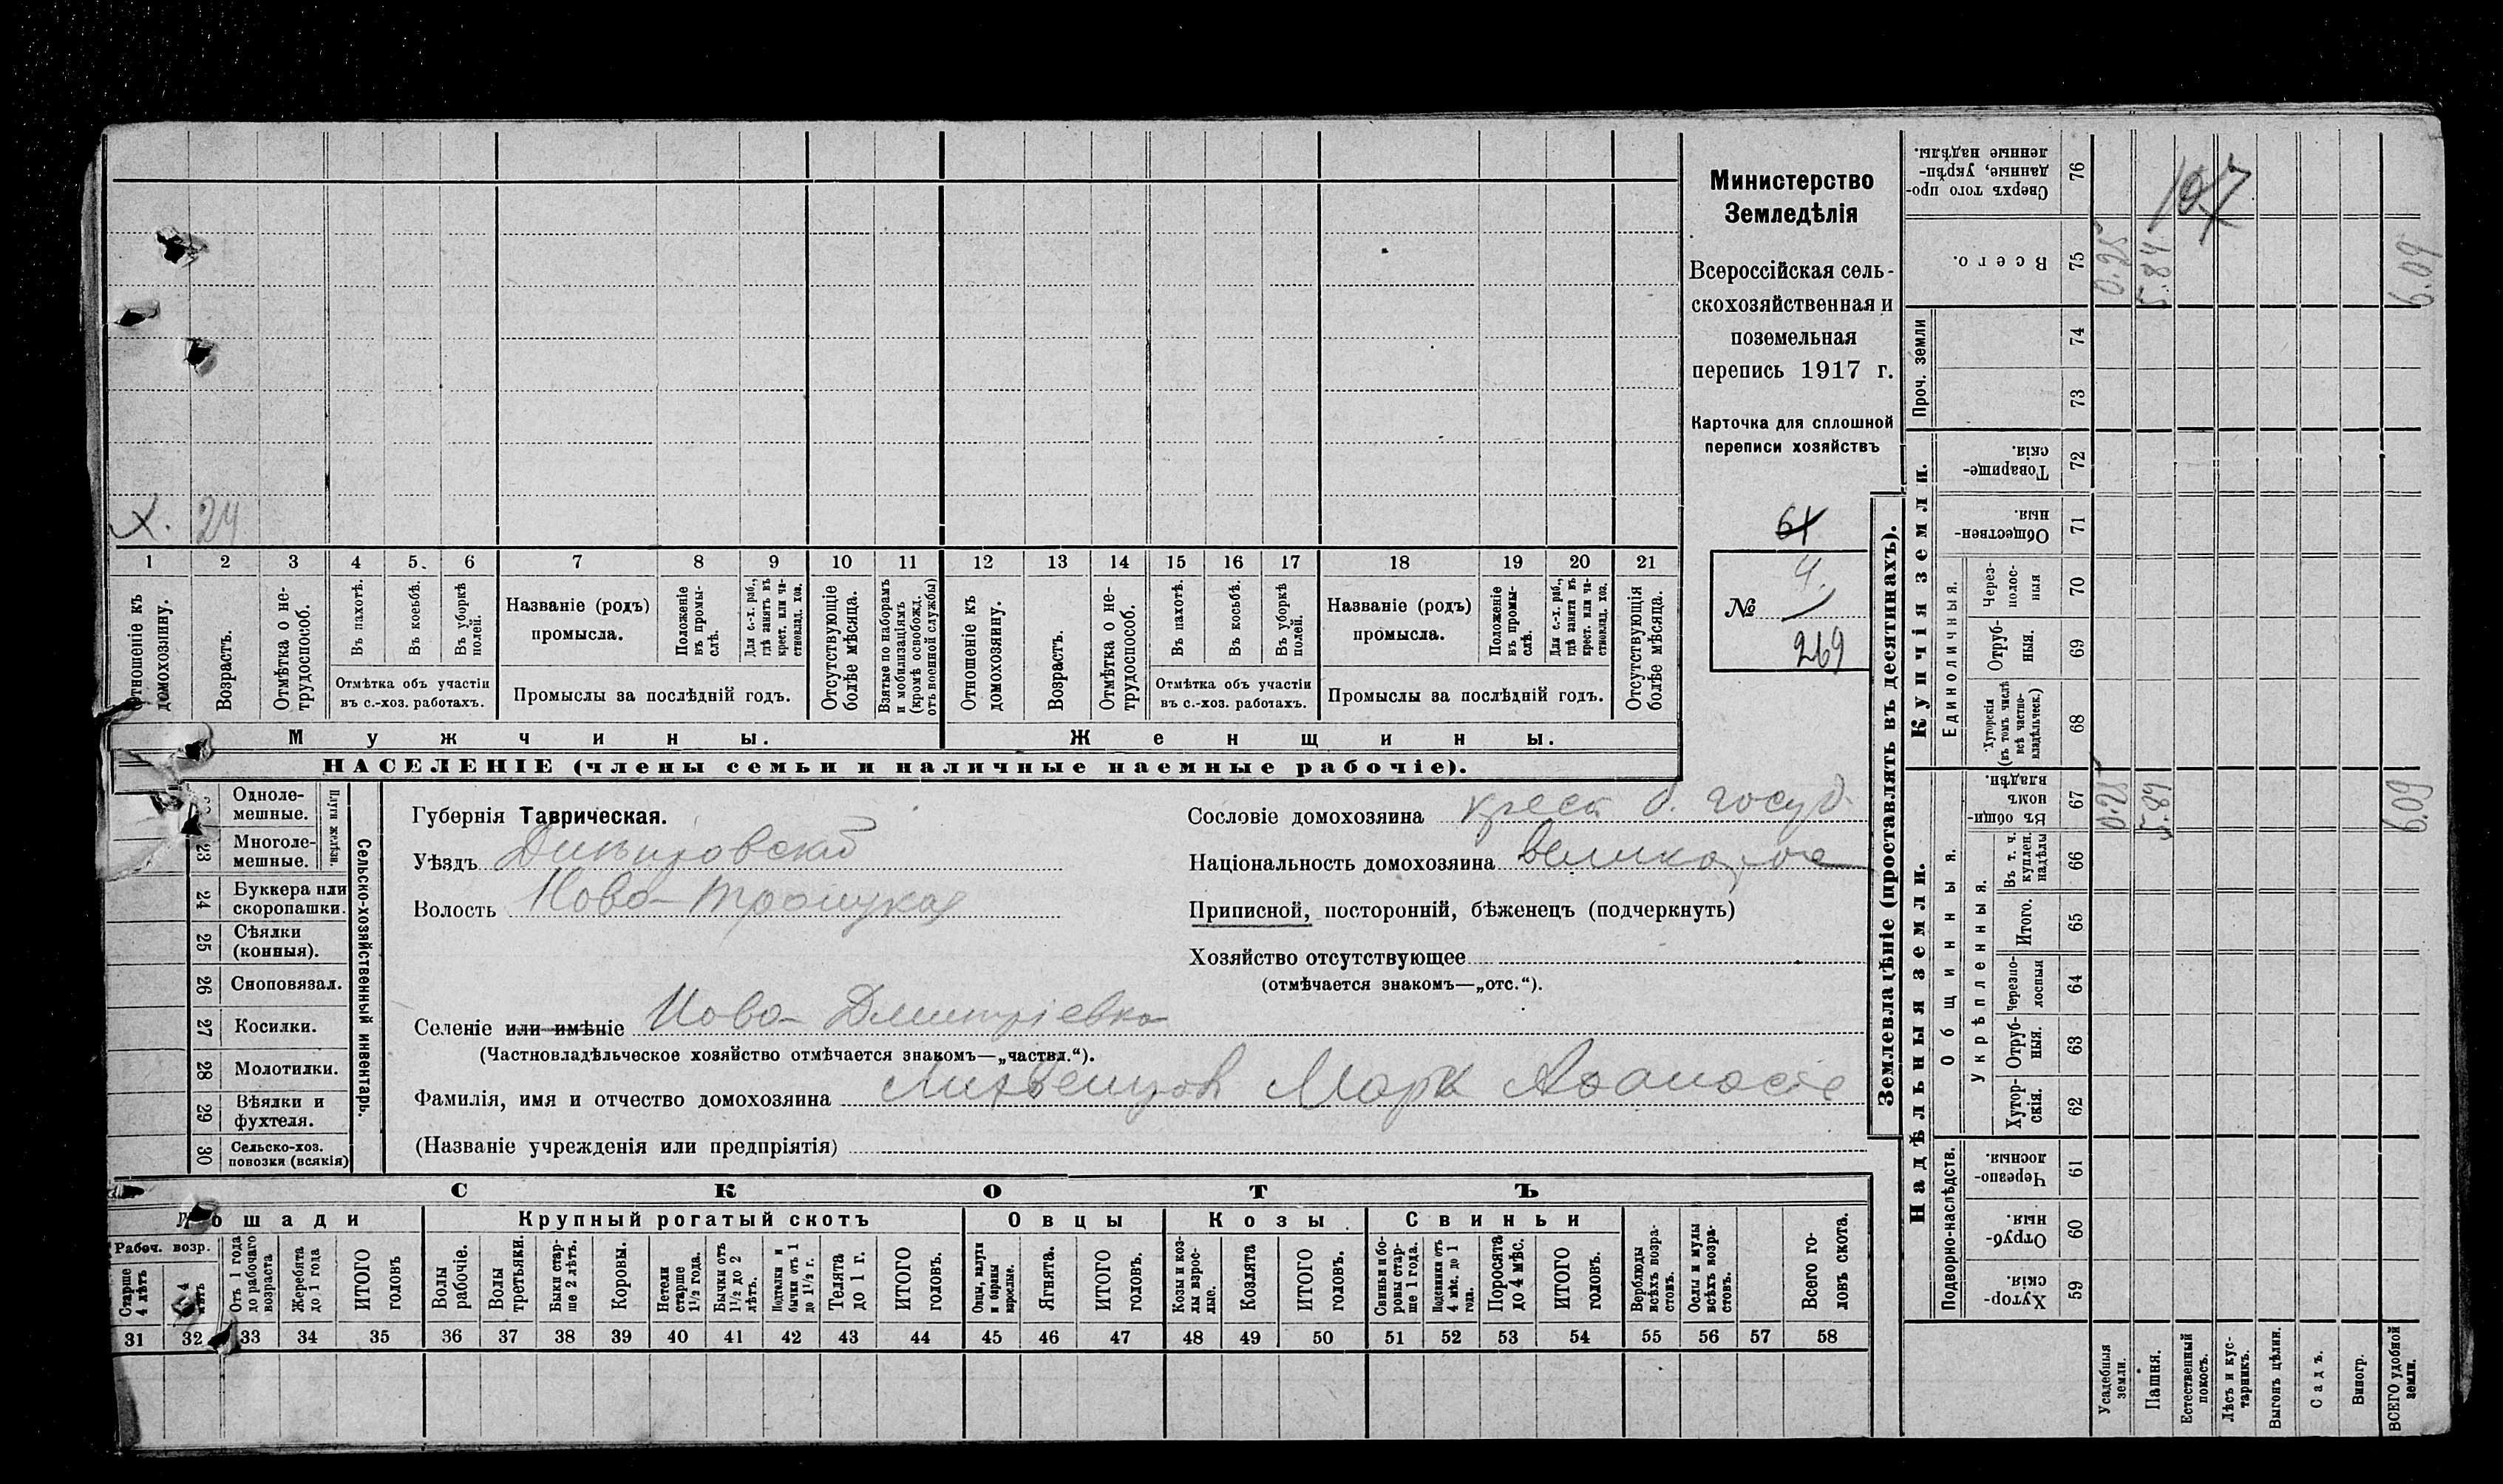 Х. 24
1 2 3 4 5 6 7 8 9 10 11 12 13 14 15 16 17 18 19 20 21
Отношеніе къ домохозяину.
Возрастъ.
Отмѣтка о нетрудоспособ.
Въ пахотѣ.
Въ косьбѣ.
Въ уборкѣ полей.
Отмѣтка объ участіи
въ с.-хоз. работахъ.
Названіе (родъ)
промысла.
Положеніе въ промыслѣ.
Для с.-х. раб., гдѣ занятъ въ крест. или частновлад. хоз.
Промыслы за послѣдній годъ.
Отсутствующіе болѣе мѣсяца.
Взятые по наборамъ и мобилизаціямъ (кромѣ освобожд. отъ военной службы)
Отношеніе къ домохозяину.
Возрастъ.
Отмѣтка о нетрудоспособ.
Въ пахотѣ.
Въ косьбѣ.
Въ уборкѣ полей.
Отмѣтка объ участіи
въ с.-хоз. работахъ.
Названіе (родъ)
промысла.
Положеніе въ промыслѣ.
Для с.-х. раб., гдѣ занята въ крест. или частновлад. хоз.
Промыслы за послѣдній годъ.
Отсутствующія болѣе мѣсяца.
Мужчины. Женщины.
НАСЕЛЕНІЕ (члены семьи и наличные наемные рабочіе).
Министерство
Земледѣлія
Всероссійская сель-
скохозяйственная и
поземельная
перепись 1917 г.
Карточка для сплошной
переписи хозяйствъ
61
4.
№
269
Сельско-хозяйственный инвентарь.
Плуги желѣзн.
Однолемешные.
23 Многолемешные.
24 Буккера или скоропашки.
25 Сѣялки (конныя).
26 Сноповязал.
27 Косилки.
28 Молотилки.
29 Вѣялки и фухтеля.
30 Сельско-хоз. повозки (всякія)
Губернія Таврическая.
Уѣздъ Днѣпровскій
Волость Ново-Троицкая
Селеніе или имѣніе Ново-Дмитріевка
(Частновладѣльческое хозяйство отмѣчается знакомъ—„частвл.“).
Фамилія, имя и отчество домохозяина Маркъ
(Названіе учрежденія или предпріятія)
Сословіе домохозяина крест. б. госуд.
Національность домохозяина великорос
Приписной, посторонній, бѣженецъ (подчеркнуть)
Хозяйство отсутствующее
(отмѣчается знакомъ—„отс.“).
СКОТЪ
Лошади Крупный рогатый скотъ Овцы Козы Свиньи
Рабоч. возр.
Старше 4 лѣтъ
4 лѣтъ
Отъ 1 года до рабочаго возраста
Жеребята до 1 года
ИТОГО головъ
Волы рабочіе.
Волы третьяки.
Быки старше 2 лѣтъ.
Коровы.
Нетели старше 1½ года.
Бычки отъ 1½ до 2 лѣтъ.
Подтелки и бычки отъ 1 до 1½ г.
Телята до 1 г.
ИТОГО головъ.
Овцы, валухи и бараны взрослые.
Ягнята.
ИТОГО головъ.
Козы и козлы взрослые.
Козлята
ИТОГО головъ.
Свиньи и боровы старше 1 года.
Подсвинки отъ 4 мѣс. до 1 года.
Поросята до 4 мѣс.
ИТОГО головъ.
Верблюды всѣхъ возрастовъ.
Ослы и мулы всѣхъ возрастовъ.
Всего головъ скота.
31 32 33 34 35 36 37 38 39 40 41 42 43 44 45 46 47 48 49 50 51 52 53 54 55 56 57 58
Землевладѣніе (проставлять въ десятинахъ).
Надѣльныя земли. Купчія земли.
Проч. земли
Подворно-наслѣдств.
Общинныя.
Укрѣпленныя.
Единоличныя.
Сверхъ того проданные, укрѣпленные надѣлы. 76
Всего. 75 0.25 5.84 6.09
74
73
Товарищескія. 72
Общественныя. 71
Черезполосныя 70
Отрубныя. 69
Хуторскія (въ томъ числѣ всѣ частновладѣльческ.) 68
Въ общинномъ владѣн. 67 0.25 5.84 6.09
Въ т. ч. куплен. надѣлы 66
Итого. 65
Черезполосныя 64
Отрубныя. 63
Хуторскія. 62
Черезполосныя. 61
Отрубныя. 60
Хуторскія. 59
Усадебныя земли.
Пашня.
Естественный покосъ.
Лѣсъ и кустарникъ.
Выгонъ цѣлин.
Садъ.
Виногр.
ВСЕГО удобной земли.